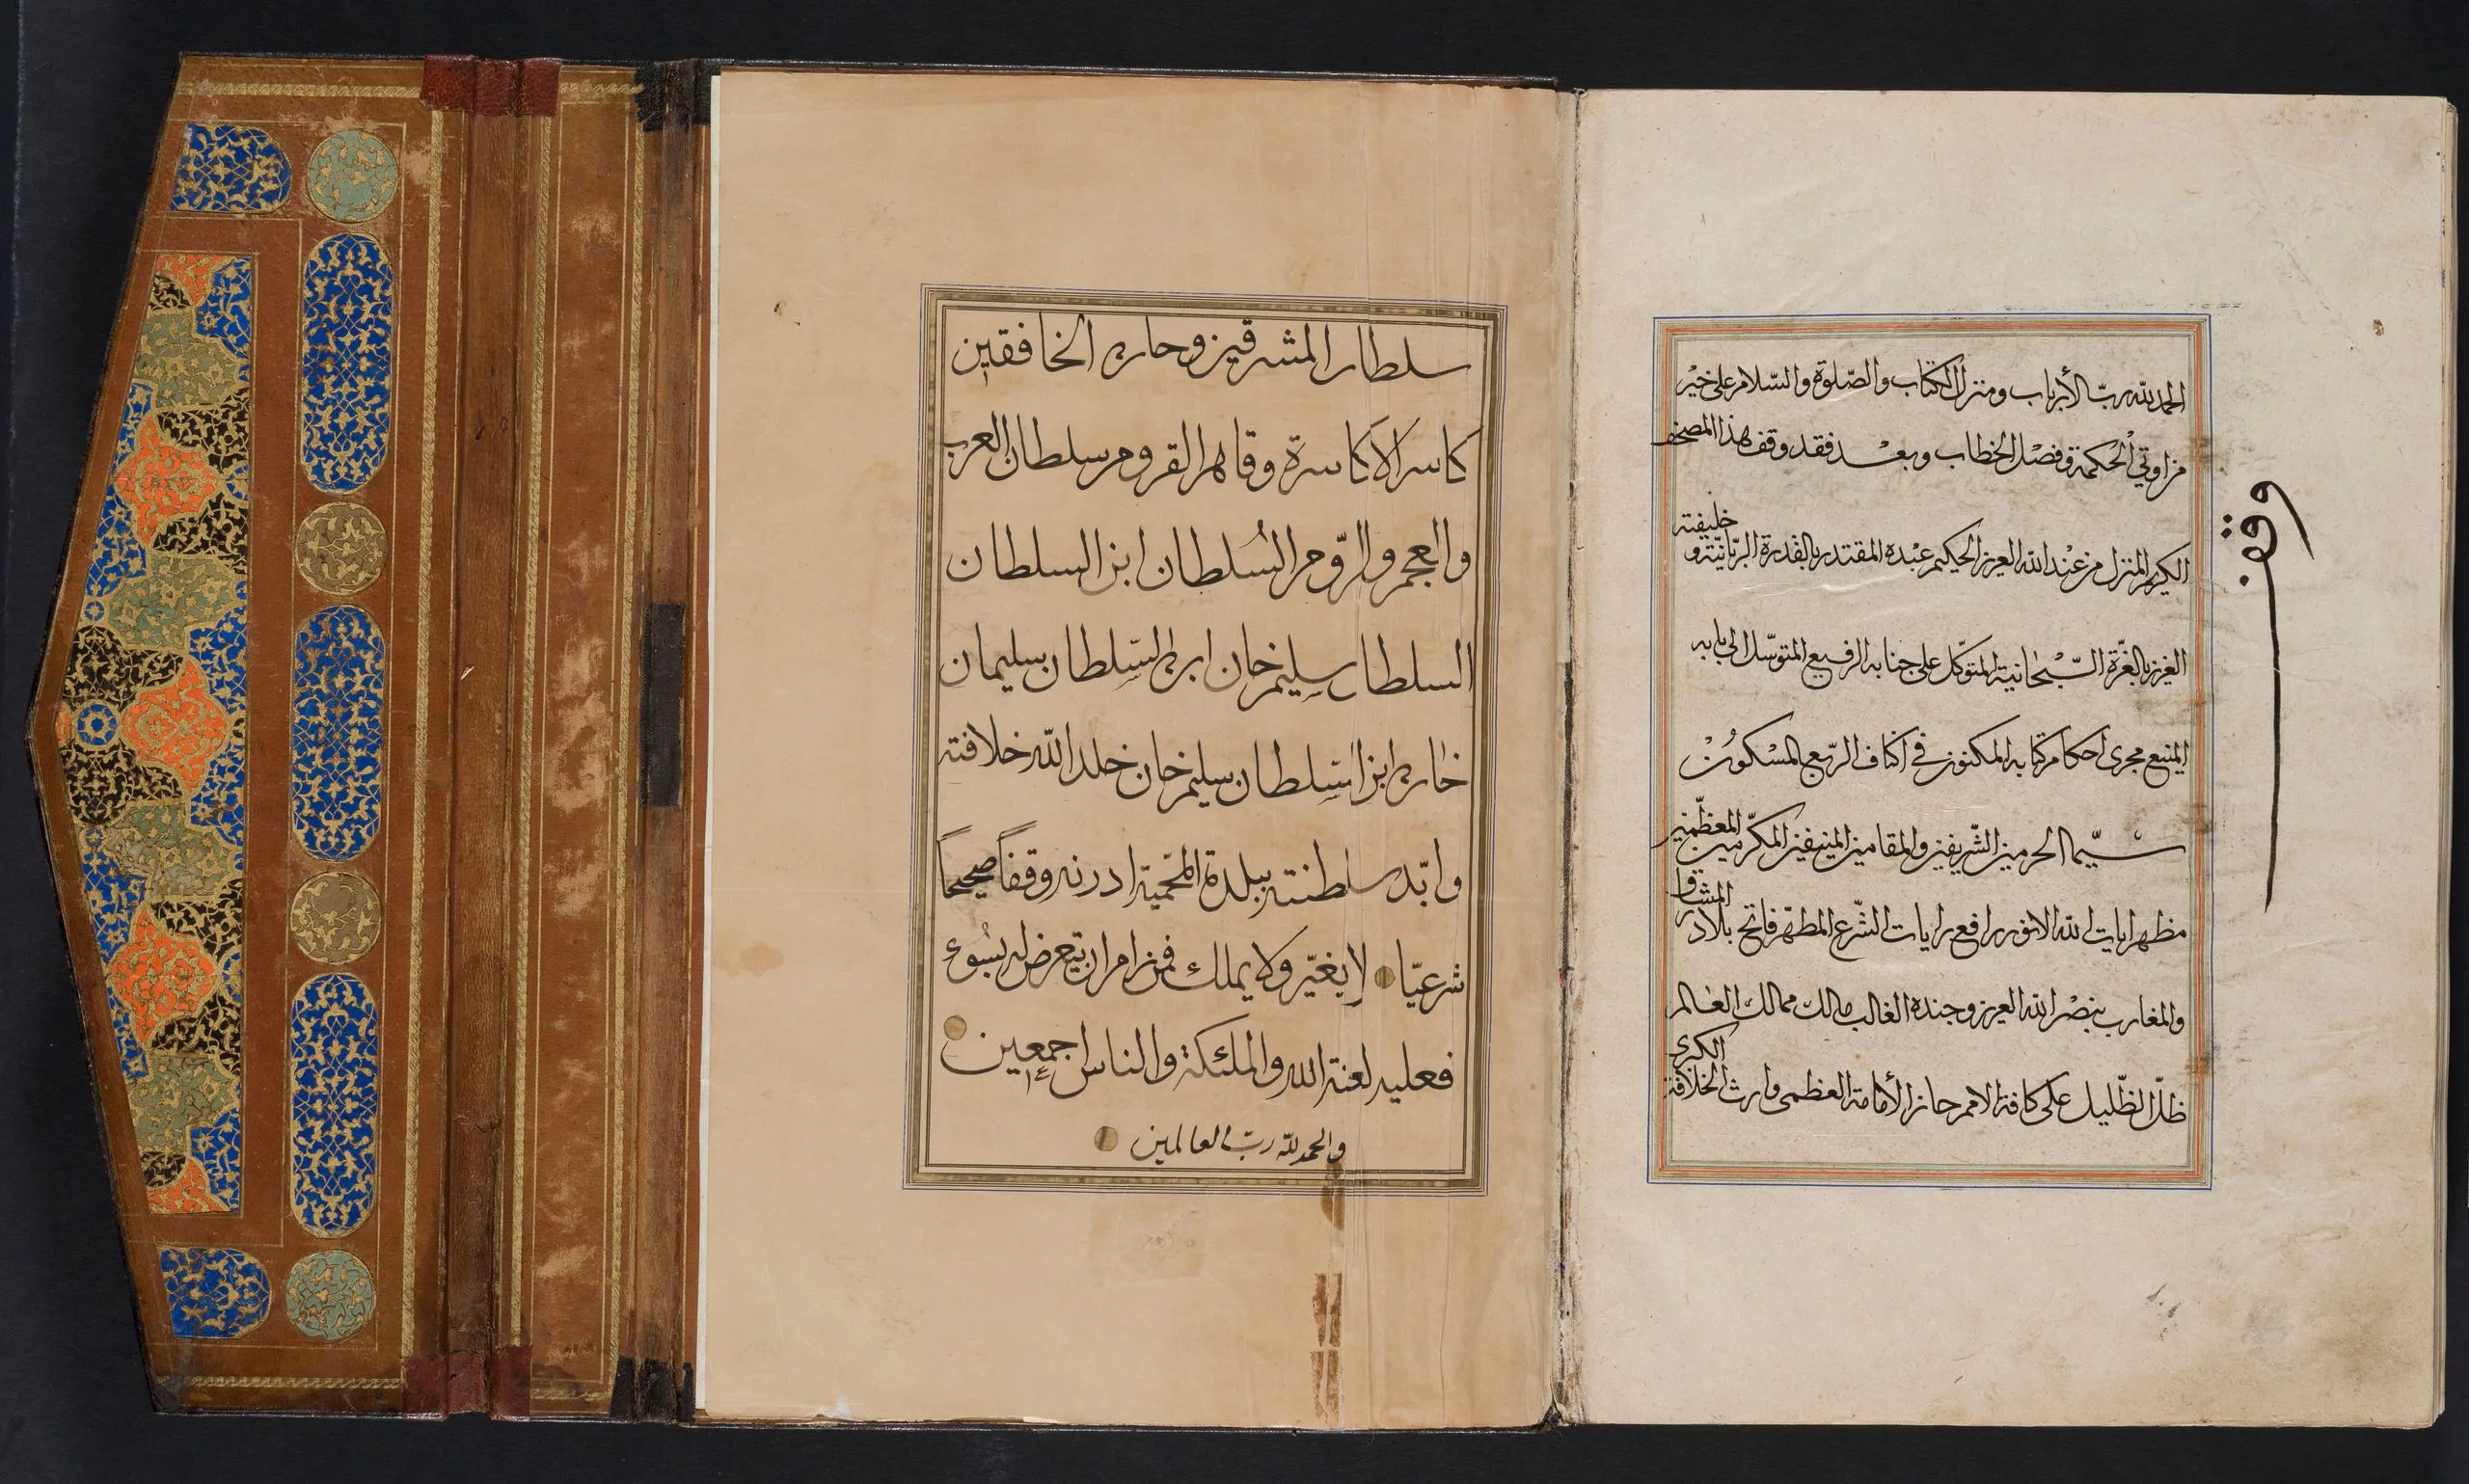 الحمد لله ربّ الأرباب ومنزل الكتاب والصّلوة والسّلام على خيْر
من اوتي الْحكمة وفصْل الخطاب وبعْد فقد وقف هذا المصحف
الكريم المنزل منْ عنْد الله العزيز الحكيم عبْده المقتدر بالقدرة الربّانيّة و خليفته
العزيز بالعزّة السّبْحانية المتوكّل على جنابه الرفيع المتوسّل الى بابه
المنيع مجرى احكام كتابه المكنون في اكناف الربْع المسْكونْ
سيّما الحرمين الشّريفين والمقامين المنيفين المكرّمين المعظّمين
مظهر ايات الله الانور رافع رايات الشّرع المطهّر فاتح بلاد المشارق
والمغارب بنصْر الله العزيز وجنده الغالب مالك ممالك العالم
ظلّ الظّليل على كافة الامم حائز الأمامة العظمى وارث الخلافة الكبرى
وقف
سلطان المشرقين وخان الخافقين
كاسر الاكاسرة وقاهر القروم سلطان العرب
والعجم والرّوم السُلطان ابن السلطان
السلطان سليم خان ابن السّلطان سليمان
خان ابن السّلطان سليم خان خلد الله خلافته
وابّد سلطنته ببلدة المحمية ادرنه وقفاً صحيحاً
شرعيّا لا يغيّر ولا يملك فمن رام ان يتعرض له بسُوء
فعليه لعنة الله والملئكة والناس اجمعين
والحمد لله ربّ العالمين